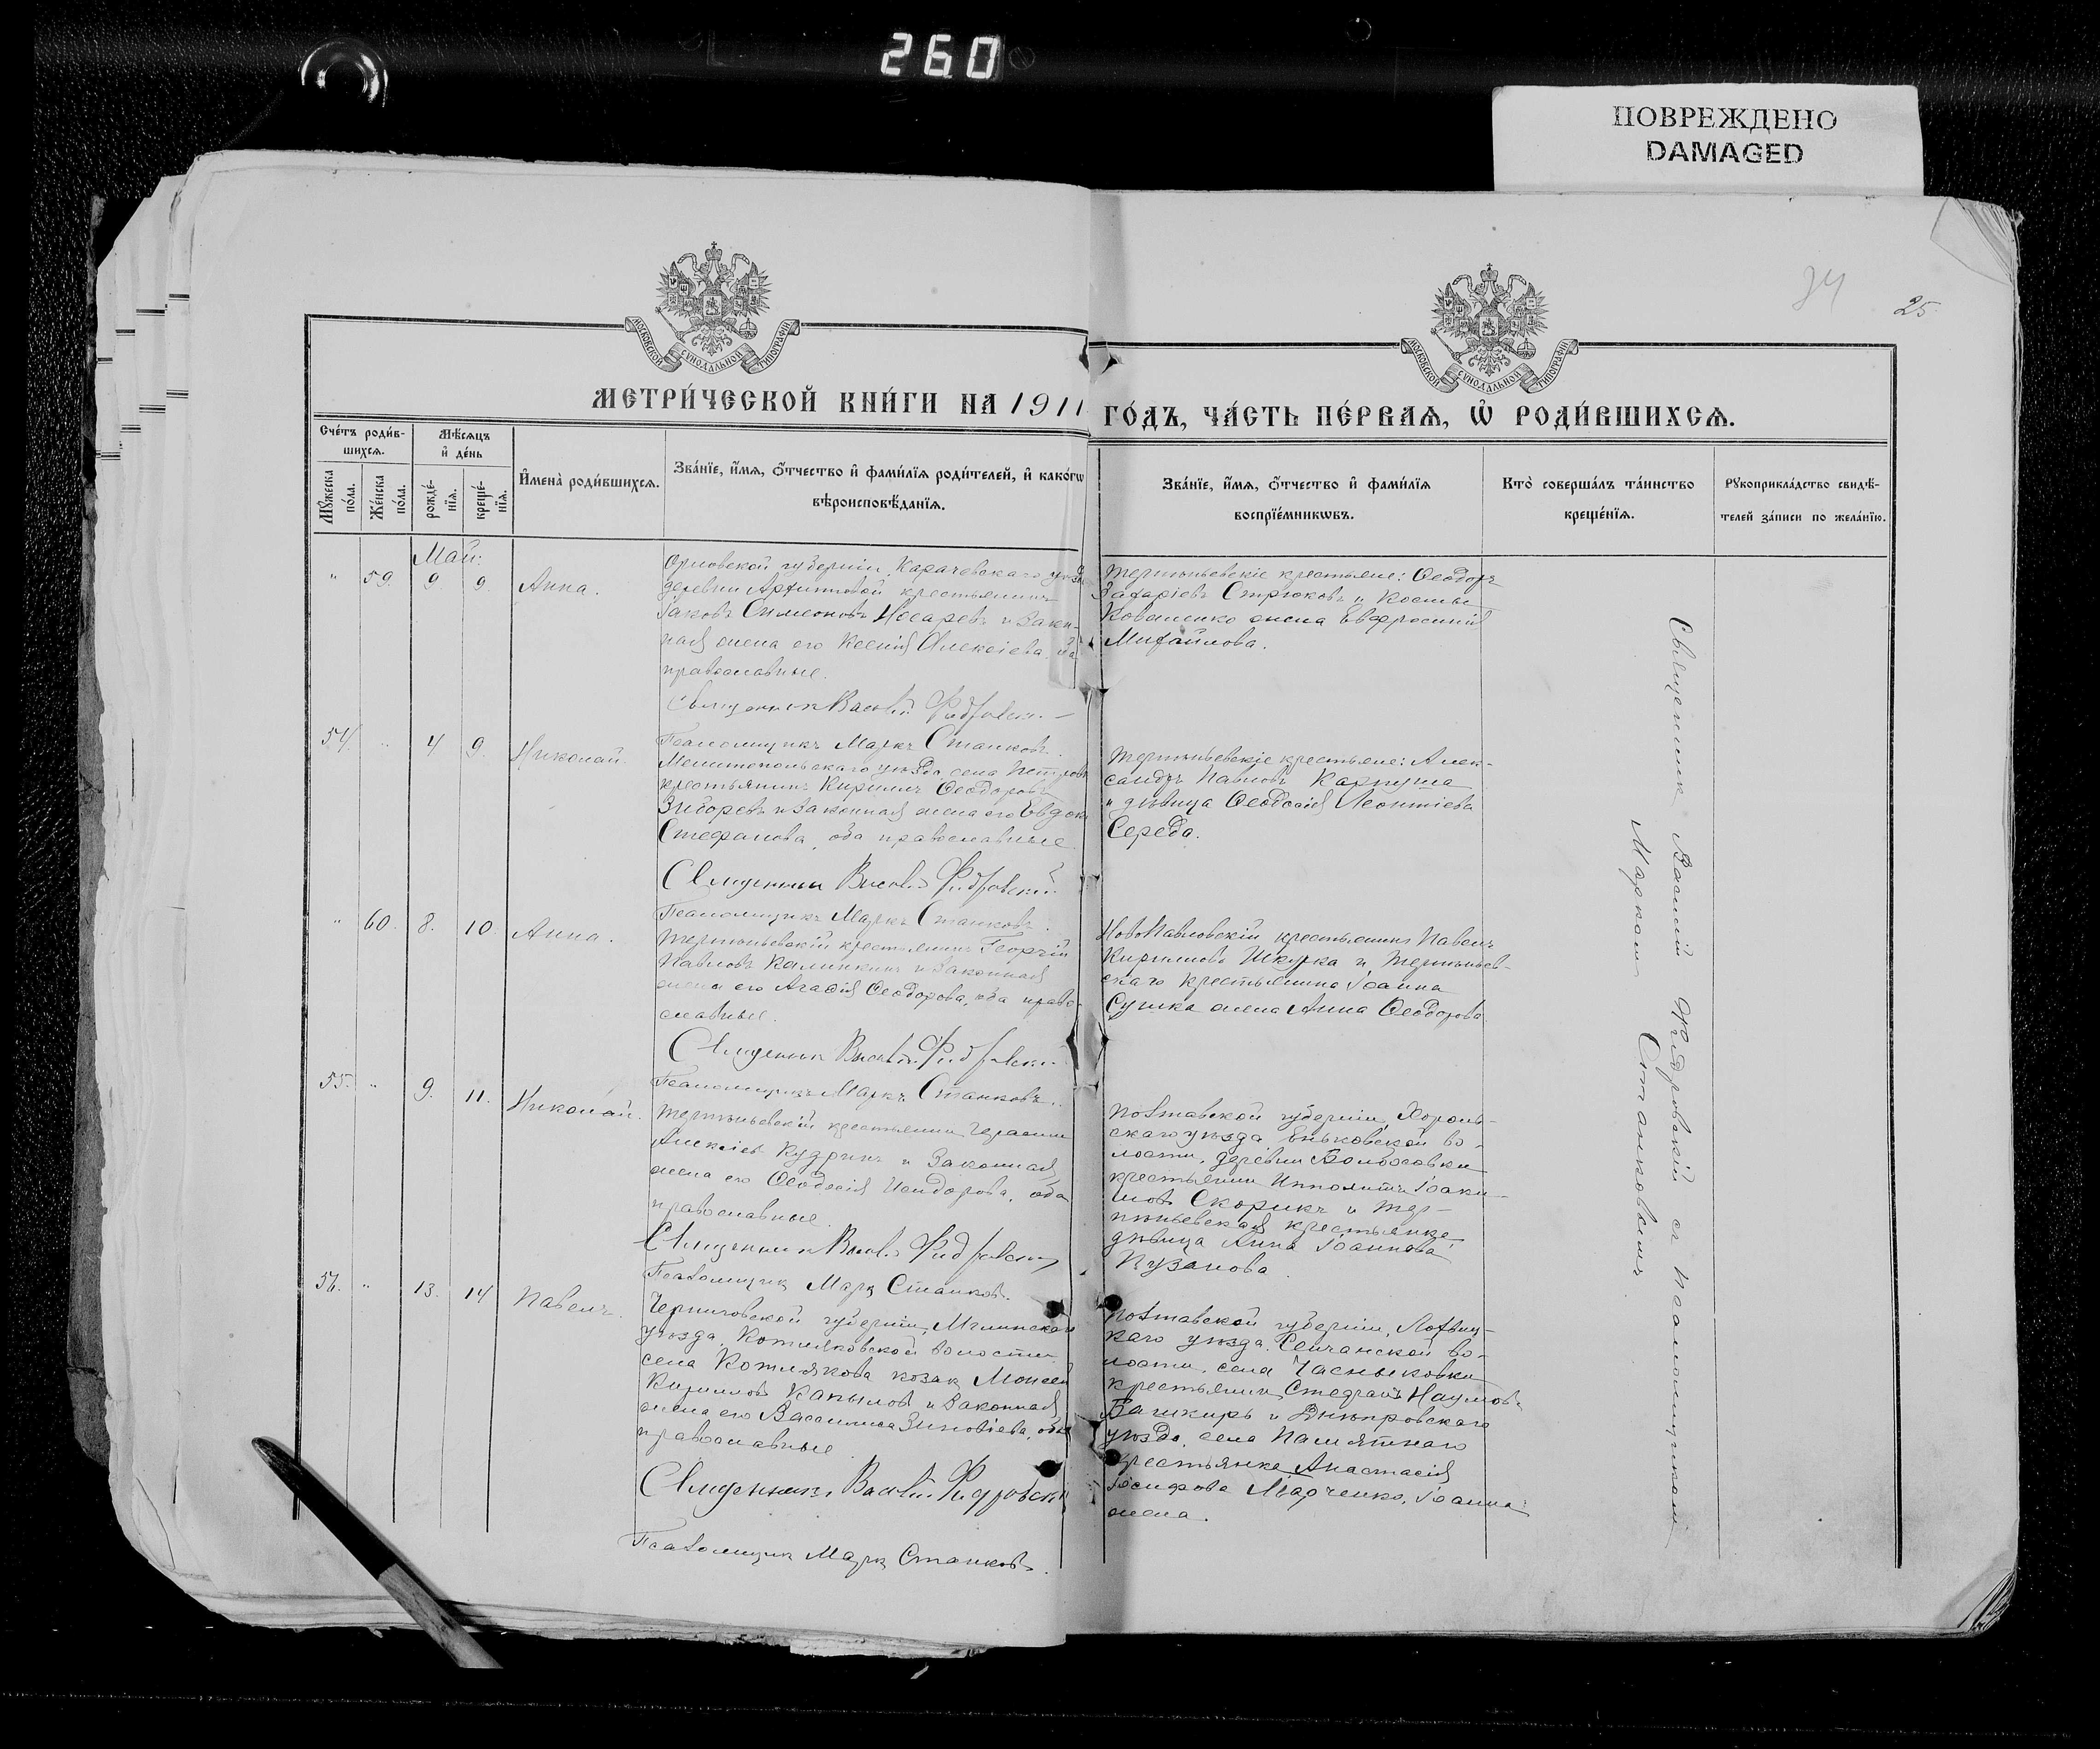 260
ПОВРЕЖДЕНО
DAMAGED
34
25.
МОСКОВСКОЙ СѴНОДАЛЬНОЙ ТИПОГРАФІИ
МОСКОВСКОЙ СѴНОДАЛЬНОЙ ТИПОГРАФІИ
МЕТРИ́ЧЕСКОЙ КНИ́ГИ НА 1911 ГО́ДЪ, ЧА́СТЬ ПЕ́РВАѦ, Ѡ҆ РОДИ́ВШИХСѦ.
Сче́тъ роди́в-
шихсѧ.
Мꙋ́жеска по́ла.
Же́нска по́ла.
Мѣ́сѧцъ
и҆ де́нь
рожде́-
нїѧ.
креще́-
нїѧ.
И҆мена̀ роди́вшихсѧ.
Зва́нїе, и҆́мѧ, ѻ҆́тчество и҆ фами́лїѧ роди́телей, и҆ како́гѡ
вѣроисповѣ́данїѧ.
Зва́нїе, и҆́мѧ, ѻ҆́тчество и҆ фами́лїѧ
воспрїе́мникѡвъ.
Кто̀ соверша́лъ та́инство
креще́нїѧ.
Рꙋкоприкла́дство свидѣ́-
телей за́писи по жела́нїю.
Май:
" 59. 9. 9. Анна.
Орловской губерніи, Карачевскаго уѣзда
деревни крестьянинъ
Іаковъ Симеоновъ Носаревъ и закон-
ная жена его Ксенія Алексіева, оба
православные.
Священникъ Василій Фидровскій
Псаломщикъ Маркъ Станковъ.
Терпѣньевскіе крестьяне: Ѳеодоръ
Захаріевъ Стрюковъ и Косьмы
Коваленко жена Евфросинія
Михайлова.
54. " 4 9. Николай.
Мелитопольскаго уѣзда, села
крестьянинъ Кириллъ Ѳеодоровъ
и законная жена его
Стефанова, оба православные.
Священникъ Василій Фидровскій
Псаломщикъ Маркъ Станковъ.
Терпѣньевскіе крестьяне: Алек-
сандръ Павловъ Карпуша
и дѣвица Ѳеодосія Леонтіева
Середа.
" 60. 8. 10. Анна.
Терпѣньевскій крестьянинъ Георгій
Павловъ Калинкинъ и законная
жена его Агаѳія Ѳеодорова, оба право-
славные.
Священникъ Василій Фидровскій
Псаломщикъ Маркъ Станковъ.
НовоПавловскій крестьянинъ Павелъ
Кирилловъ Шкурка и Терпѣньев-
скаго крестьянина Іоанна
Сушка жена Анна Ѳеодорова
55. " 9. 11. Николай.
Терпѣньевскій крестьянинъ Герасимъ
Алексіевъ Кудринъ и законная
жена его Ѳеодосія Исидорова, оба
православные.
Священникъ Василій Фидровскій
Псаломщикъ Маркъ Станковъ.
Полтавской губерніи, Хороль-
скаго уѣзда Еньковской во-
лости, деревни
крестьянинъ Ипполитъ Іоаки-
мовъ Скорикъ и Тер-
пѣньевская крестьянка,
дѣвица Анна Іоаннова
Пузанова.
56. " 13. 14 Павелъ.
Черниговской губерніи, Мглинскаго
уѣзда, Котляковской волости
села Котлякова козакъ Моисей
Кирилловъ Капыловъ и законная
жена его Василисса Зиновіева, оба
православные.
Священникъ Василій Фидровскій
Псаломщикъ Маркъ Станковъ.
Полтавской губерніи, Лохвиц-
каго уѣзда, Сенчанской во-
лости, села Часныковки
крестьянинъ Стефанъ Наумовъ
Башкиръ и Днѣпровскаго
уѣзда, села Памятнаго
крестьянка Анастасія
Іосифова Марченко, Іоанна
жена.
Священникъ Василій Фидровскій съ псаломщикомъ
Маркомъ Станковымъ.